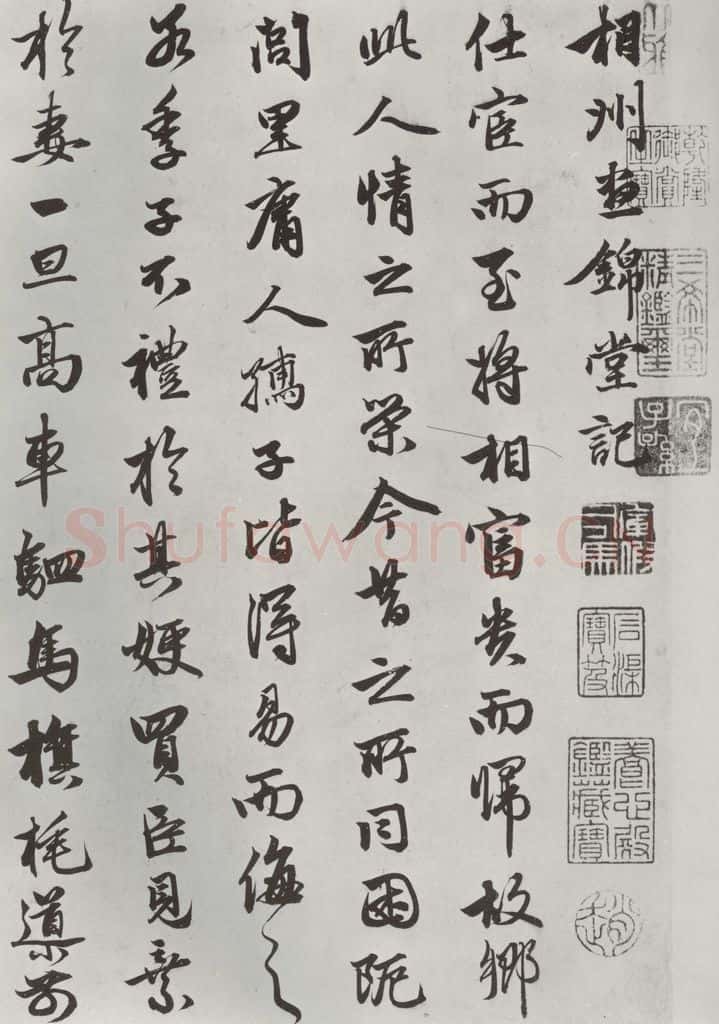 相州晝錦堂記
仕宦而至將相富貴而歸故鄉
此人情之所榮今昔之所同困阨
閭里庸人孺子皆得易而侮之
若季子不禮於其嫂買臣見棄
於妻一旦高車駟馬旗旄導前
三希堂精鑑璽
宜子孫
石渠寶笈
養心殿鑑藏寶
趙
Shufawang.cn